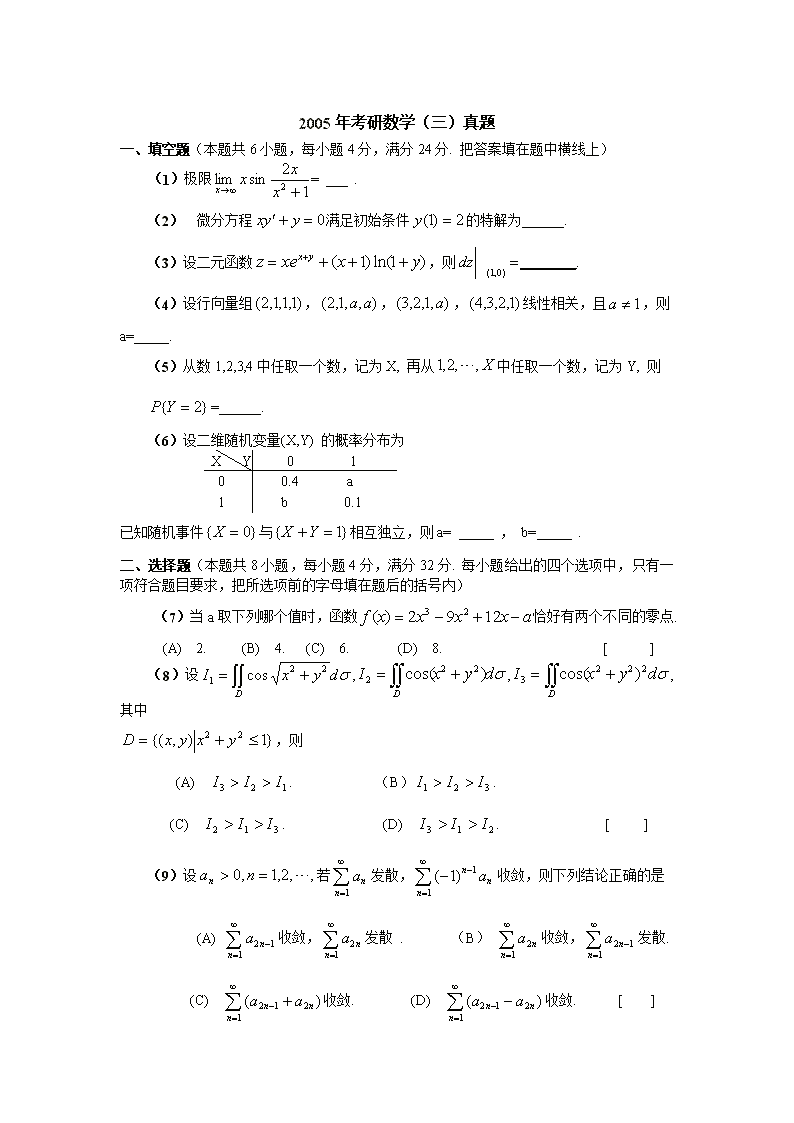 2005年考研数学（三）真题
一、填空题（本题共6小题，每小题4分，满分24分. 把答案填在题中横线上）
（1）极限 lim_{x→∞} x sin 2x/(x²+1) = ___ .
（2） 微分方程 xy′ + y = 0 满足初始条件 y(1) = 2 的特解为______.
（3）设二元函数 z = xe^{x+y} + (x+1)ln(1+y)，则 dz|_(1,0) = ________.
（4）设行向量组 (2,1,1,1)，(2,1,a,a)，(3,2,1,a)，(4,3,2,1) 线性相关，且 a ≠ 1，则
a=_____.
（5）从数 1,2,3,4 中任取一个数，记为 X, 再从 1,2,⋯,X 中任取一个数，记为 Y, 则
P{Y = 2} =______.
（6）设二维随机变量(X,Y) 的概率分布为
X Y 0 1
0 0.4 a
1 b 0.1
已知随机事件{X = 0}与{X + Y = 1}相互独立，则 a= _____ ， b=_____ .
二、选择题（本题共 8 小题，每小题 4 分，满分 32 分. 每小题给出的四个选项中，只有一
项符合题目要求，把所选项前的字母填在题后的括号内）
（7）当 a 取下列哪个值时，函数 f(x) = 2x³ − 9x² + 12x − a 恰好有两个不同的零点.
(A) 2. (B) 4. (C) 6. (D) 8. [ ]
（8）设 I₁ = ∬_D cos √(x² + y²) dσ, I₂ = ∬_D cos(x² + y²)dσ, I₃ = ∬_D cos(x² + y²)² dσ,
其中
D = {(x,y)|x² + y² ≤ 1}，则
(A) I₃ > I₂ > I₁. （B）I₁ > I₂ > I₃.
(C) I₂ > I₁ > I₃. (D) I₃ > I₁ > I₂. [ ]
（9）设 aₙ > 0, n = 1,2,⋯, 若 ∑_{n=1}^∞ aₙ 发散，∑_{n=1}^∞ (−1)^{n−1} aₙ 收敛，则下列结论正确的是
(A) ∑_{n=1}^∞ a_{2n−1} 收敛，∑_{n=1}^∞ a_{2n} 发散 . （B） ∑_{n=1}^∞ a_{2n} 收敛，∑_{n=1}^∞ a_{2n−1} 发散.
(C) ∑_{n=1}^∞ (a_{2n−1} + a_{2n}) 收敛. (D) ∑_{n=1}^∞ (a_{2n−1} − a_{2n}) 收敛. [ ]